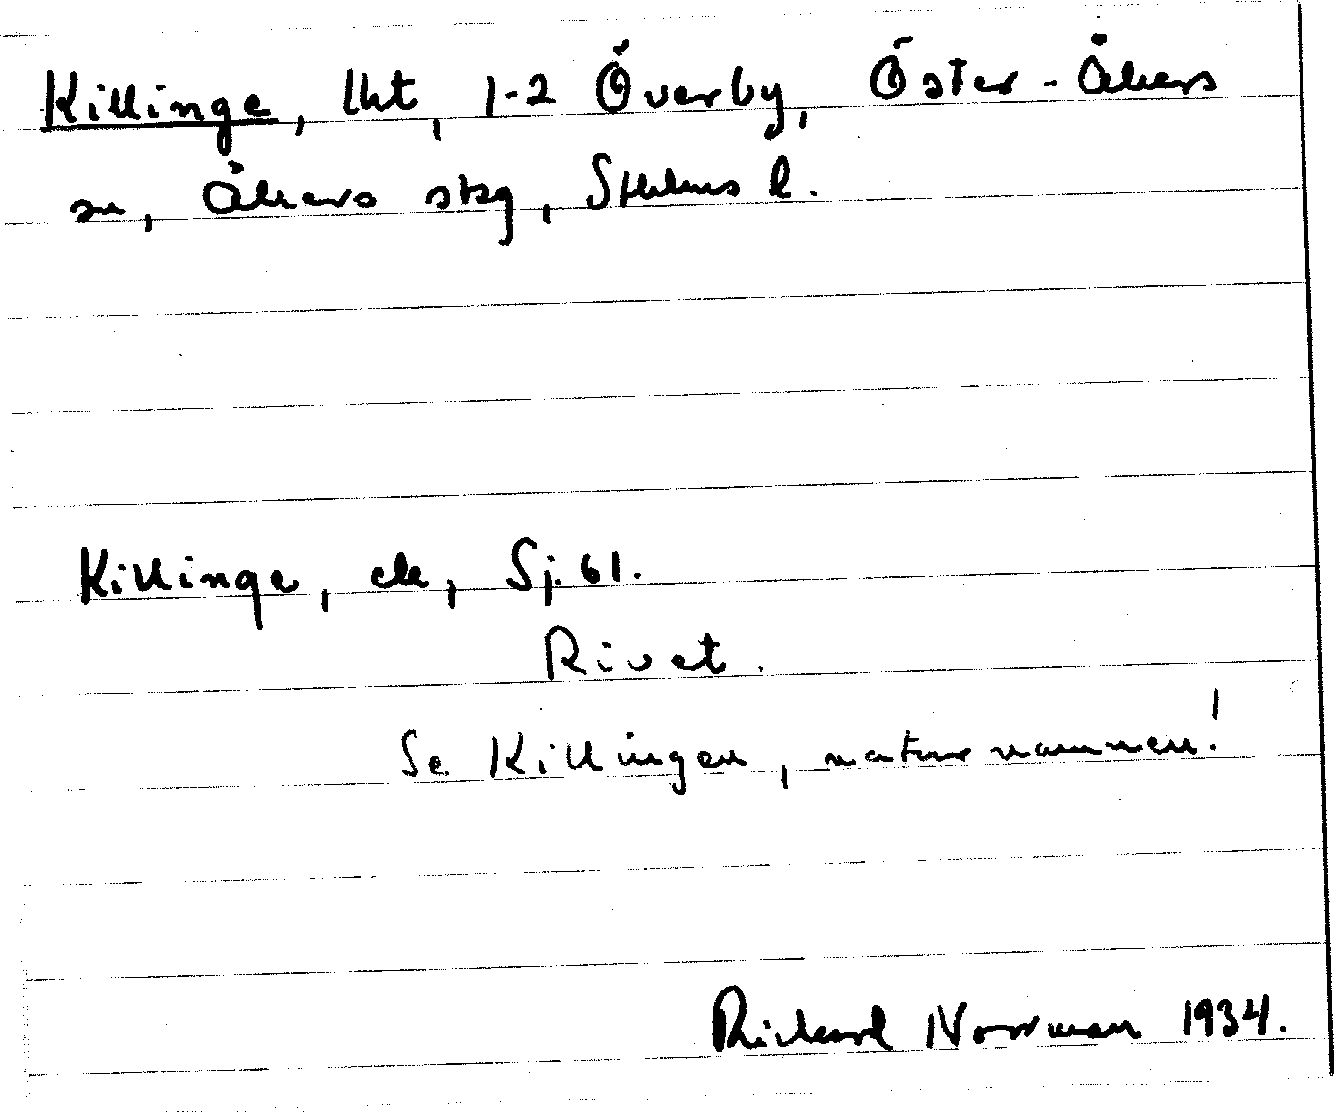 Killinge, lht, 1-2 Överby, Öster-Åkers
sn, Åkers skg, Sthlms l.
Killinge, ek, Sj. 61.
Rivet.
Se Killingen, naturnamnen!
Rickard Norrman 1934.